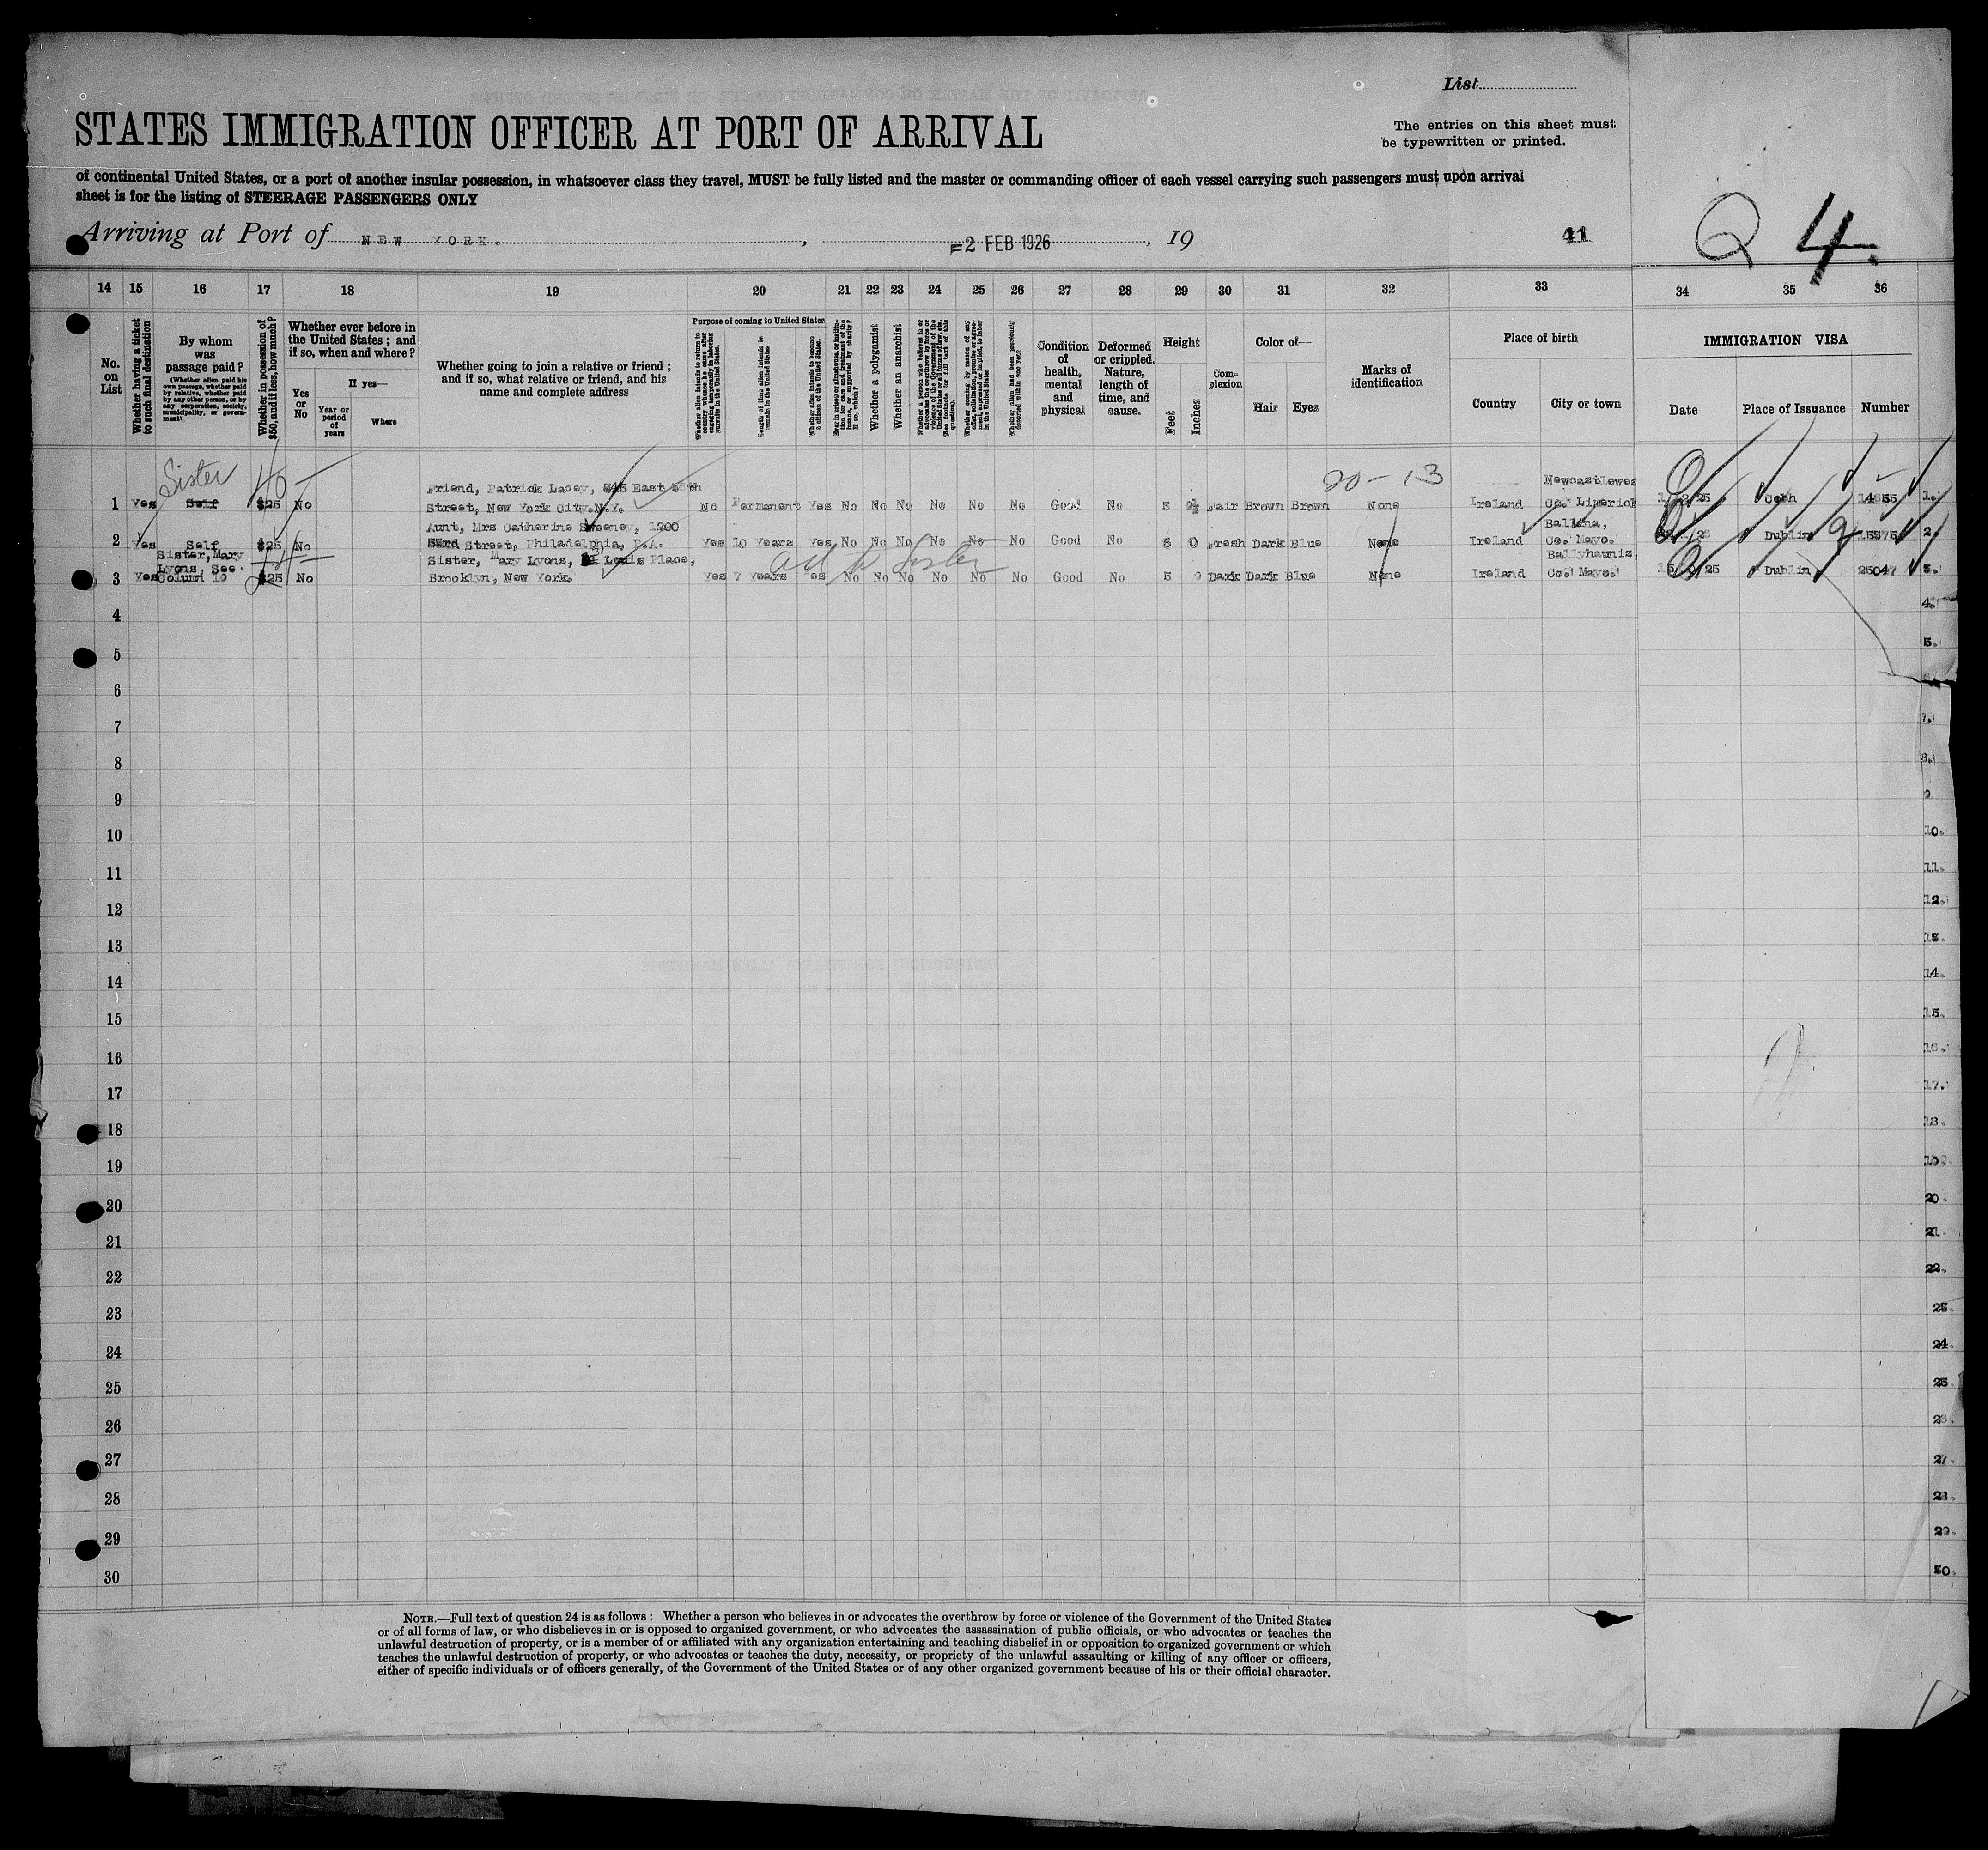 List
STATES IMMIGRATION OFFICER AT PORT OF ARRIVAL
The entries on this sheet must
be typewritten or printed.
of continental United States, or a port of another insular possession, in whatsoever class they travel, MUST be fully listed and the master or commanding officer of each vessel carrying such passengers must upon arrival
sheet is for the listing of STEERAGE PASSENGERS ONLY
Arriving at Port of NEW YORK. , 2 FEB 1926 , 19
41
Q 4.
14 15 16 17 18 19 20 21 22 23 24 25 26 27 28 29 30 31 32 33 34 35 36
No. on List
Whether having a ticket to such final destination
By whom was passage paid?
(Whether alien paid his own passage, whether paid by relative, whether paid by any other person, or by any corporation, society, municipality, or government)
Whether in possession of $50, and if less, how much?
Whether ever before in the United States; and if so, when and where?
Yes or No
If yes—
Year or period of years
Where
Whether going to join a relative or friend; and if so, what relative or friend, and his name and complete address
Purpose of coming to United States
Whether alien intends to return to country whence he came after engaging temporarily in laboring pursuits in the United States.
Length of time alien intends to remain in the United States
Whether alien intends to become a citizen of the United States.
Whether a polygamist
Whether an anarchist
Condition of health, mental and physical
Deformed or crippled. Nature, length of time, and cause.
Height
Feet
Inches
Complexion
Color of—
Hair
Eyes
Marks of identification
Place of birth
Country
City or town
IMMIGRATION VISA
Date
Place of Issuance
Number
Sister 40 20-13
1 Yes Self $25 No Friend, Patrick Lacey, East
Street, New York City.N.Y. No Permanent Yes No No No No No No Good No 5 9½ Fair Brown Brown None Ireland Newcastlewest
Co. Limerick Cobh 1.
2 Yes Self $25 No Aunt, Mrs Catherine Sweeney, 1200
Street, Philadelphia, P.A. Yes 10 Years Yes No No No No No No Good No 6 0 Fresh Dark Blue None Ireland Ballina,
Co. Mayo. Dublin 2
3 Yes Sister, Mary
Lyons, See
Column 19 $25 No Sister, Mary Lyons, Louis Place,
Brooklyn, New York. Yes 7 Years Yes No No No No No No Good No 5 9 Dark Dark Blue None Ireland Ballyhaunis,
Co. Mayo. Dublin 25047 3.
ad to Sister
4 4.
5 5.
6
7 7.
8 8.
9 9
10 10.
11 11.
12 12.
13 13.
14 14.
15 15.
16 16.
17 17.
18 18.
19 19.
20 20.
21 21.
22 22.
23 23.
24 24.
25 25.
26 26.
27 27.
28 28.
29 29.
30 30.
NOTE.—Full text of question 24 is as follows: Whether a person who believes in or advocates the overthrow by force or violence of the Government of the United States
or of all forms of law, or who disbelieves in or is opposed to organized government, or who advocates the assassination of public officials, or who advocates or teaches the
unlawful destruction of property, or is a member of or affiliated with any organization entertaining and teaching disbelief in or opposition to organized government or which
teaches the unlawful destruction of property, or who advocates or teaches the duty, necessity, or propriety of the unlawful assaulting or killing of any officer or officers,
either of specific individuals or of officers generally, of the Government of the United States or of any other organized government because of his or their official character.